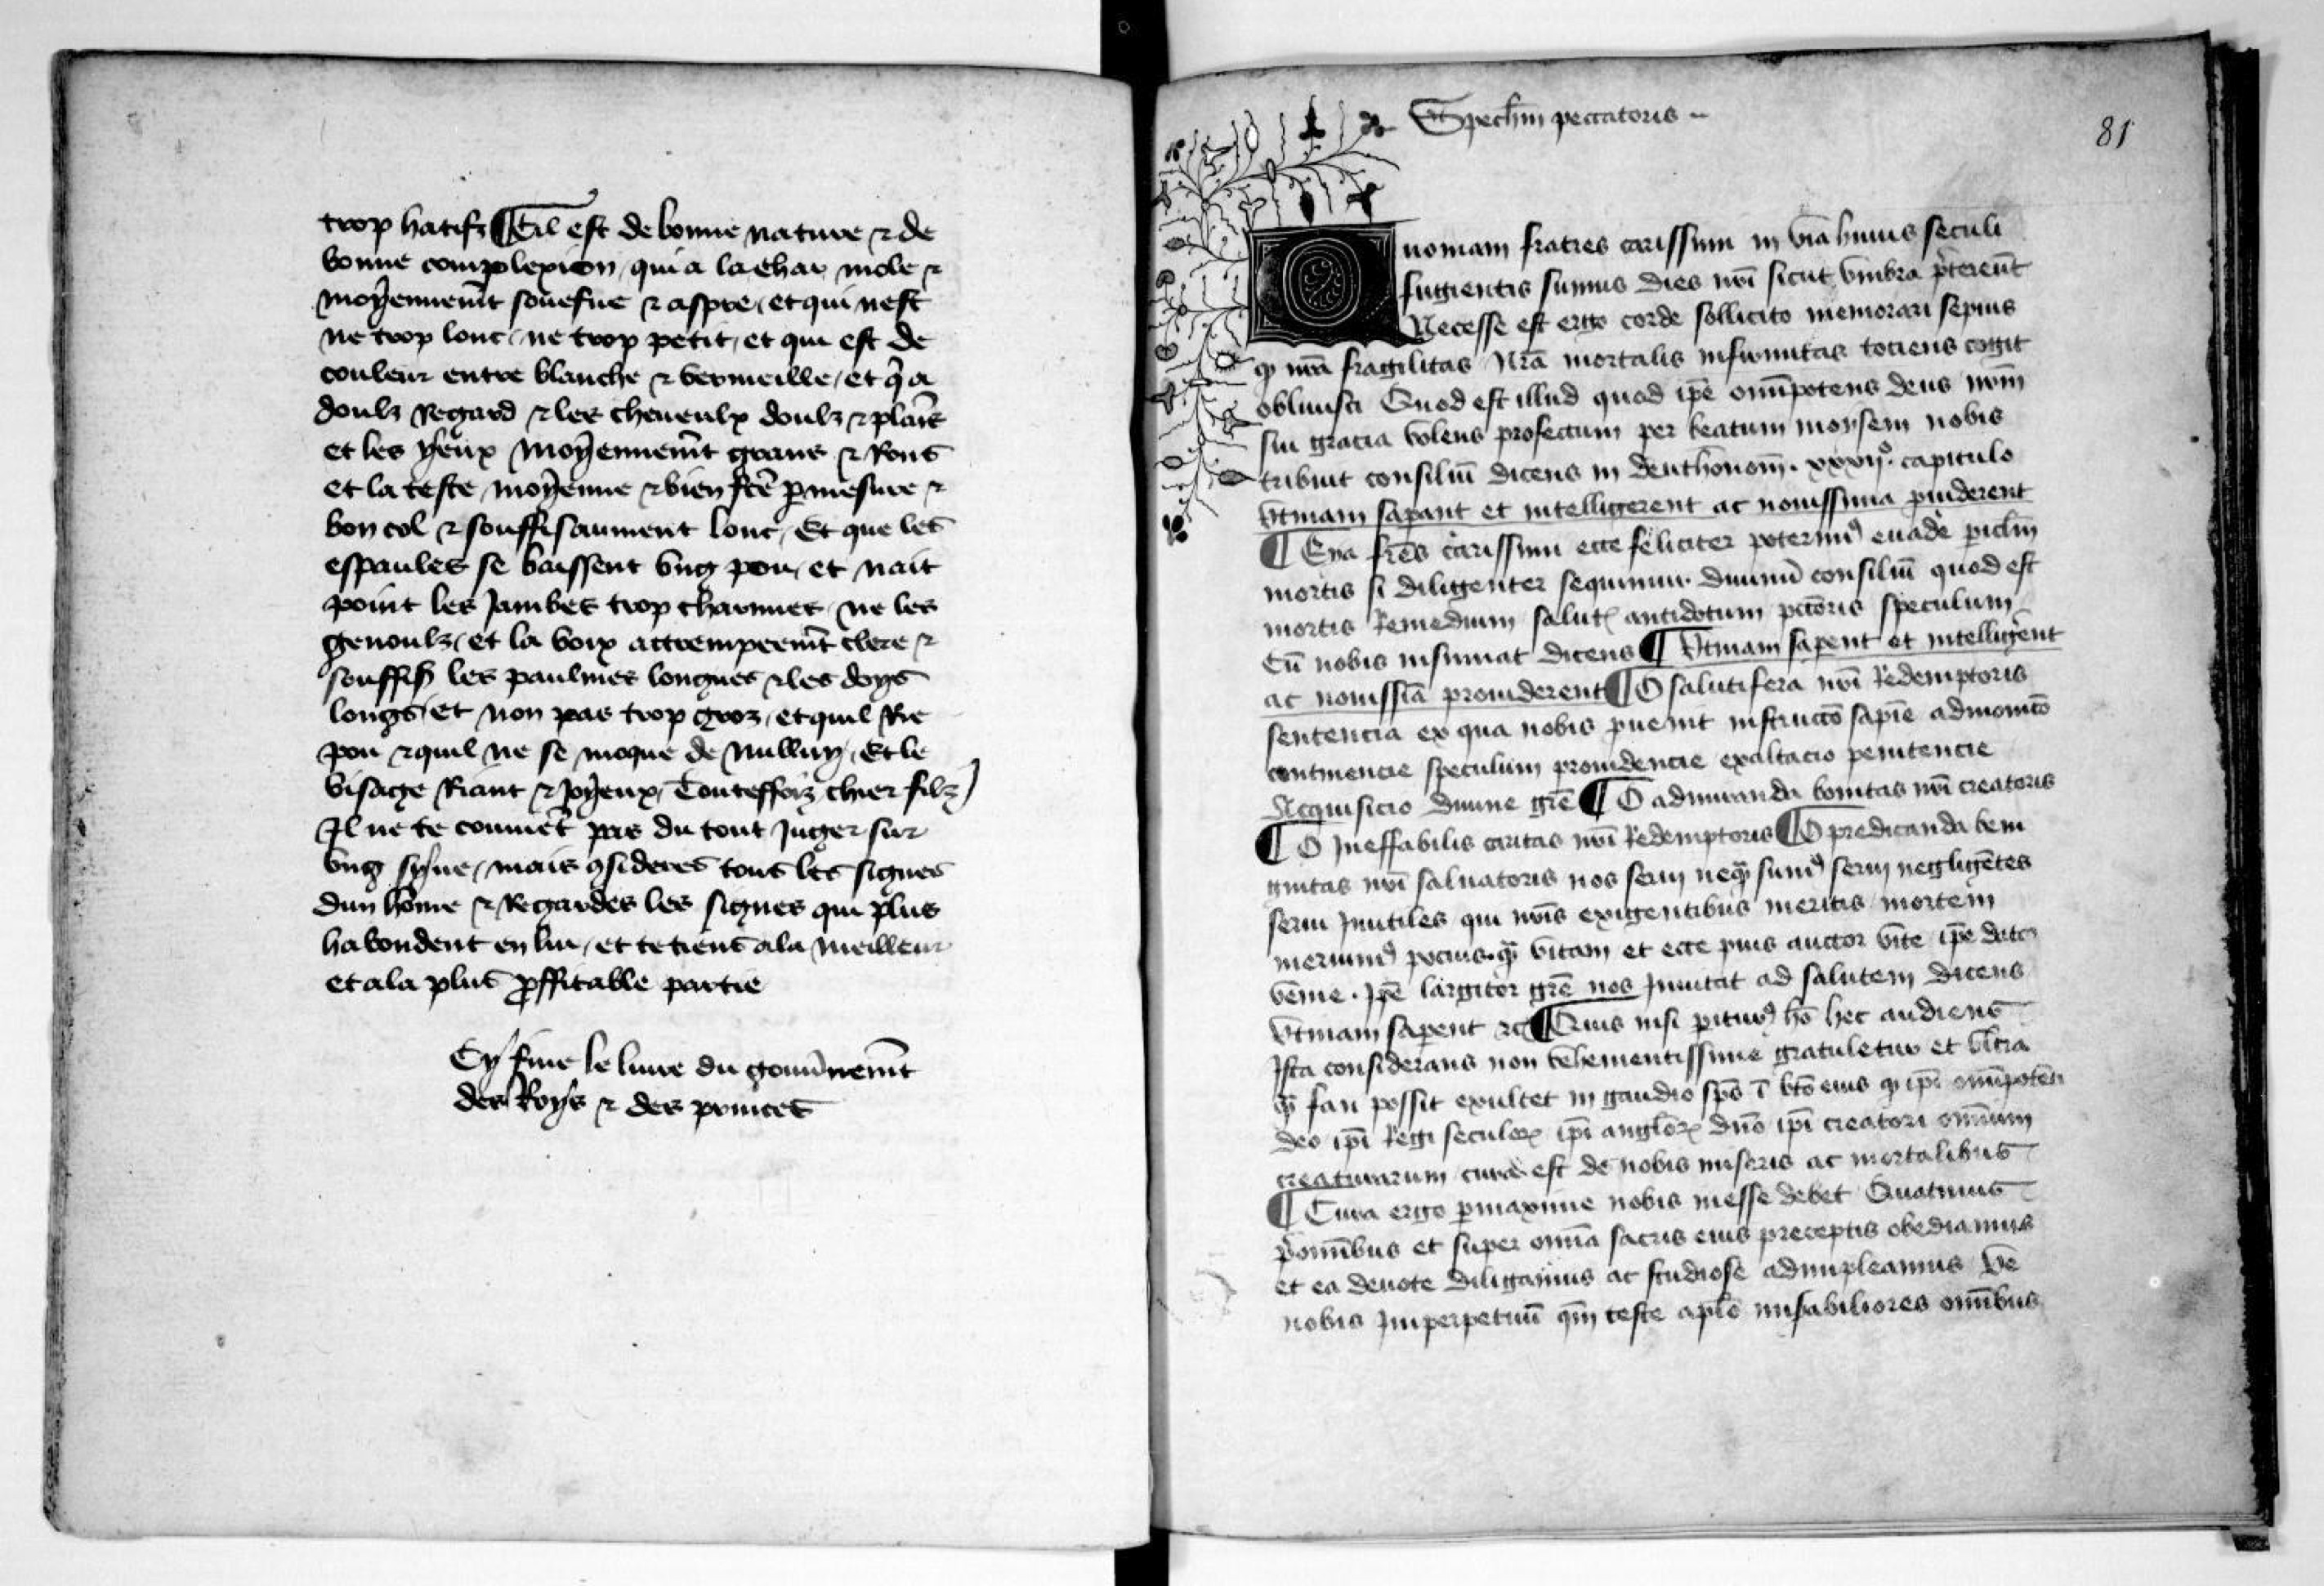 trop hatifz ¶ Cil est de bonne nature ⁊ de
bonne complexion, qui a la char mole ⁊
moyẽnnemẽt souefue ⁊ aspre, et qui nest
ne trop lonc, ne trop petit, et qui est de
couleur entre blanche ⁊ vermeille, et q̃ a
doulz Regard ⁊ les cheueulx doulz ⁊ plaĩs
et les yeux moyẽnnemẽt grans ⁊ Rons
et la teste moyenne ⁊ bien fcẽ ꝑ mesure ⁊
bon col ⁊ souffisaument lonc, Et que les
espaules se baissent vng pou, et nait
point les Jambes trop charnues, ne les
genoulz, et la voix attrempreemẽt clere ⁊
souffiss les paulmes longues ⁊ les doys
longs, et non pas trop groz, et quil Rie
pou ⁊ quil ne se moque de nulluy, Et le
visage Riant ⁊ Joyeux, Touteffoiz chier filz
Il ne te conuiẽt pas du tout Juger sur
vng syne, mais ꝯsideres tous les signes
dun hõme ⁊ Regardes les signes qui plus
habondent en lui, et te tiens a la meilleur
et a la plus ꝓffitable partie
Cy fine le liure du gouũnemẽt
des Roys ⁊ des princes
Specl̃m peccatoris
81
Quoniam fratres carissimi in via huius seculi
fugientis sumus dies nr̃i sicut vmbra p̃tereũt
Necesse est ergo corde sollicito memorari sepius
ꝙ nr̃a fragilitas Nr̃a mortalis infirmitas tociens cogit
obliuisci Quod est illud quod ip̃e omĩpotens deus nr̃m
sui gracia volens profectum per beatum moysem nobis
tribuit consiliũ dicens in deuthonom̃. xxxijº. capitulo
Vtinam saperent et intelligerent ac nouissima ꝓuiderent
¶ Eya frẽs carissimi ecce feliciter poterimꝰ euadẽ piclm̃
mortis si diligenter sequimur diuinũ consiliũ quod est
mortis Remedium salutꝭ antidotum pctõris speculum
Cũ nobis insinuat dicens ¶ Vtinam saperent et intelligẽnt
ac nouissĩa prouiderent ¶ O salutifera nr̃i Redemptoris
sentencia ex qua nobis ꝓuenit instructõ sapĩe admonicõ
continencie speculum prouidencie exaltacio penitencie
Acquisicio diuine gr̃e ¶ O admiranda bonitas nr̃i creatoris
¶ O Ineffabilis caritas nr̃i Redemptoris ¶ O predicanda beni
gnitas nr̃i saluatoris nos serui neqꝫ sumꝰ serui negligẽtes
serui Inutiles qui nr̃is exigentibus meritis mortem
meruimꝰ pocius q̃ vitam et ecce pius auctor vite ip̃e dator
venie . Ip̃e largitor gr̃e nos Inuitat ad salutem dicens
Vtinam saperent ⁊c̃ ¶ Quis nisi pituꝰ hõ hec audiens
Ista considerans non vehementissime gratuletur et vltra
q̃ fari possit exultet in gaudio sp̃s ĩ btõ eius ꝙ ip̃i omĩpotẽti
deo ip̃i Regi seculoꝝ ip̃i angloꝝ dño ip̃i creatori omnium
creaturarum cura est de nobis miseris ac mortalibus
¶ Cura ergo ꝑmaxime nobis inesse debet Quatinus
p̃omĩbus et super omĩa sacris eius preceptis obediamus
et ea deuote diligamus ac studiose adimpleamus Ve
nobis Imperpetuũ qm̃ teste apl̃o misabiliores omĩbus